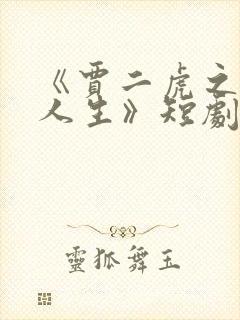 《賈二虎之
人生》短劇
靈狐舞玉